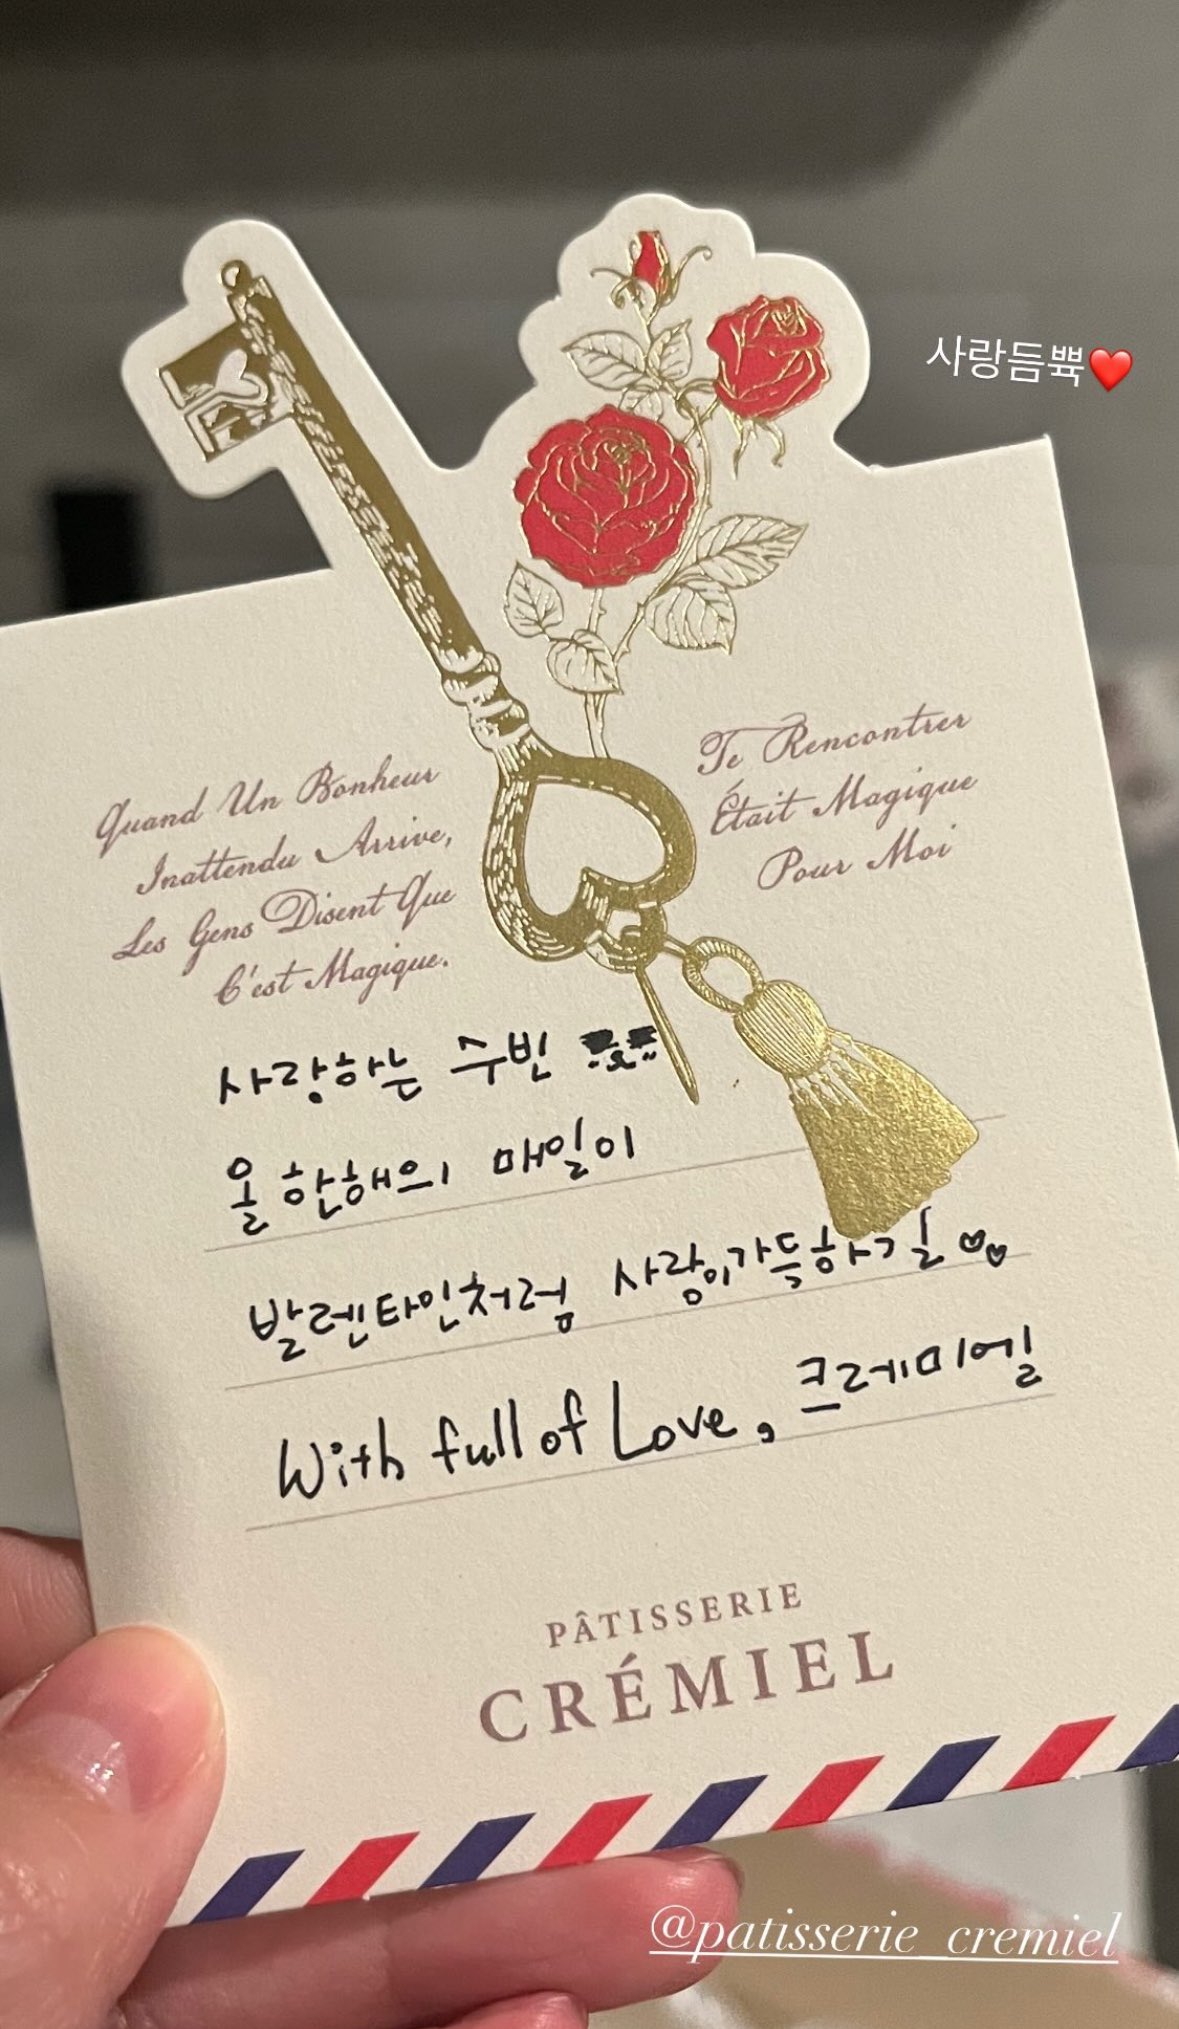 사랑듬쀽❤️
Quand Un Bonheur
Inattendu Arrive,
Les Gens Disent Que
C'est Magique.
Te Rencontrer
Était Magique
Pour Moi
사랑하는 수빈
올 한해의 매일이
발렌타인처럼 사랑이가득하길
With full of Love, 크레미엘
PÂTISSERIE
CRÉMIEL
@patisserie_cremiel